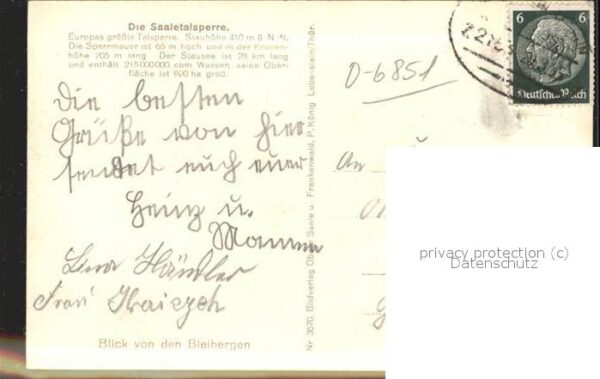 Die Saaletalsperre.
Europas größte Talsperre. Stauhöhe 410 m ü. N. N.
Die Sperrmauer ist 65 m hoch und in der Kronen-
höhe 205 m lang. Der Stausee ist 28 km lang
und enthält 215 000 000 cbm Wasser; seine Ober-
fläche ist 920 ha groß.
Die besten
Grüße von hier
sendet euch euer
Heinz u.
Mamma
Lina Händler
Frau
Blick von den Bleibergen
Nr. 3570. Bildverlag Obere Saale u. Frankenwald, P. König, Lobenstein/Thür.
D-6851
6 6
Deutsches Reich
An
privacy protection (c)
Datenschutz